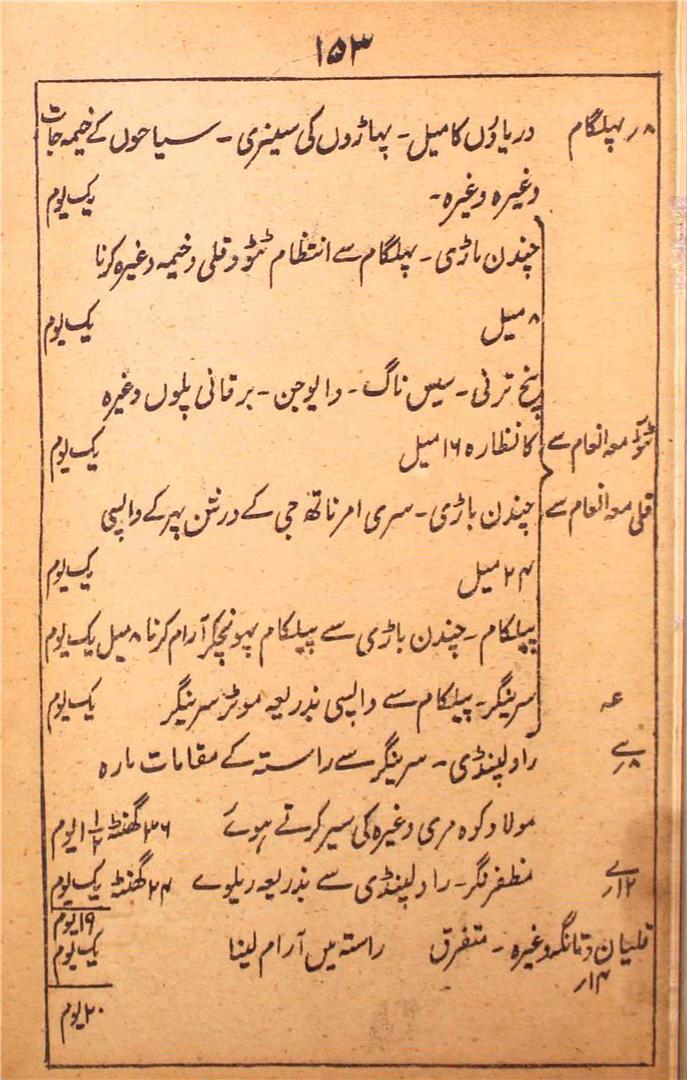 ۱۵۳
۸ر پہلگام دریاؤں کا میل ۔ پہاڑوں کی سینری ۔ سیاحوں کے خیمہ جات
وغیرہ وغیرہ ۔ یک یوم
چندن باڑی ۔ پہلگام سے انتظام ٹٹو و قلی و خیمہ وغیرہ کرنا
۸ میل یک یوم
پنج ترنی ۔ سیس ناگ ۔ وایوجن ۔ برفانی پلوں وغیرہ
ٹٹو معہ انعام سے کا نظارہ ۱۶ میل یک یوم
قلی معہ انعام سے چندن باڑی ۔ سری امرناتھ جی کے درشن کر کے واپسی
۲۴ میل یک یوم
پیلگام ۔ چندن باڑی سے پیلگام پہونچکر آرام کرنا ۸ میل یک یوم
سرینگر ۔ پیلگام سے واپسی بذریعہ موٹر سرینگر یک یوم
راولپنڈی ۔ سرینگر سے راستہ کے مقامات بارہ
مولا و کوہ مری وغیرہ کی سیر کرتے ہوئے ۳۶ گھنٹہ ۱ ۱/۲ یوم
۱۲ر مظفر نگر ۔ راولپنڈی سے بذریعہ ریلوے ۲۴ گھنٹہ یک یوم
۱۹ یوم
قلیان و تانگہ وغیرہ ۔ متفرق راستہ میں آرام لینا یک یوم
۴ار
۲۰ یوم